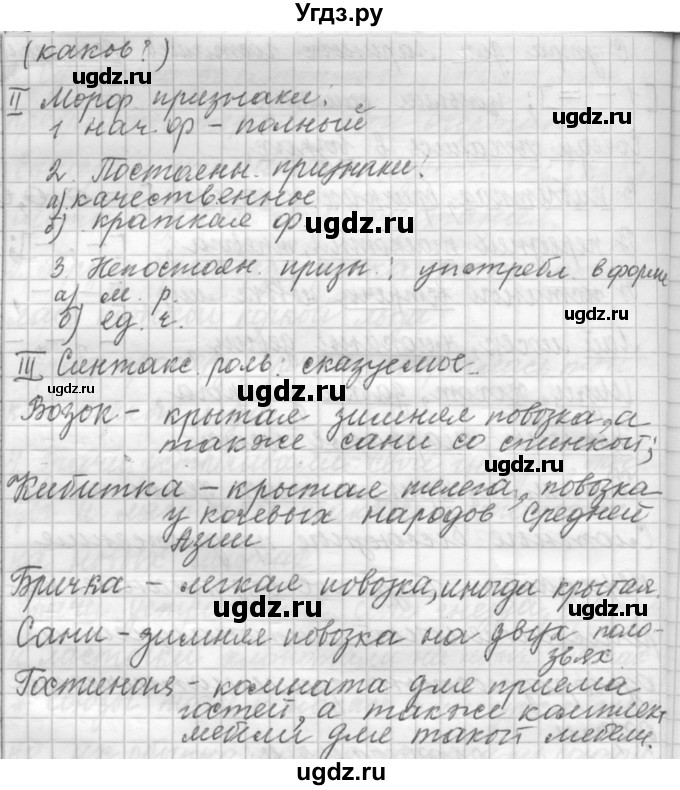 Угdз.ру
(каков?)
II Морф признаки:
1 нач. ф – полный
2. Постоянн. признаки:
а) качественное
б) краткая ф
3 Непостоян. призн.: употребл. в форме
а) м. р.
б) ед. ч.
III Синтакс. роль: сказуемое.
Возок – крытая зимняя повозка, а
также сани со спинкой;
Кибитка – крытая телега, повозка
у кочевых народов Средней
Азии
Бричка – легкая повозка, иногда крытая.
Сани – зимняя повозка на двух поло-
зьях.
Гостиная – комната для приема
гостей, а также комплект
мебели для такой мебели.
ugdz.ru
ugdz.ru
ugdz.ru
ugdz.ru
ugdz.ru
ugdz.ru
ugdz.ru
ugdz.ru
ugdz.ru
ugdz.ru
ugdz.ru
ugdz.ru
ugdz.ru
ugdz.ru